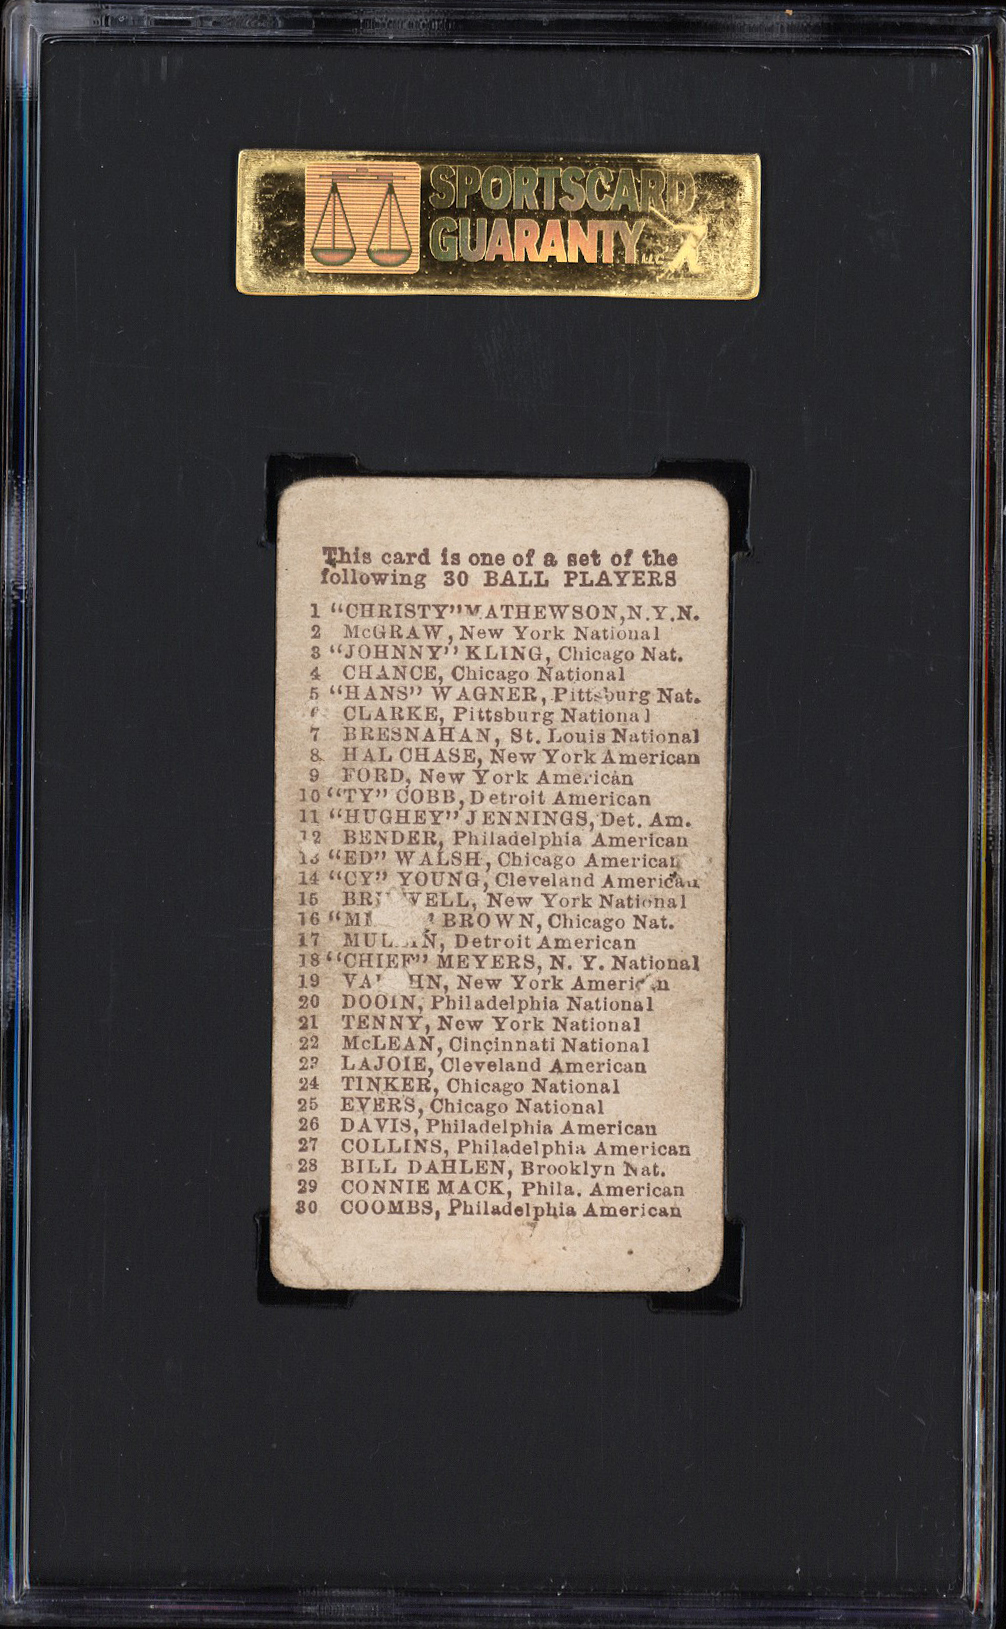 SPORTSCARD
GUARANTY LLC
This card is one of a set of the
following 30 BALL PLAYERS
1 "CHRISTY" MATHEWSON, N.Y.N.
2 McGRAW, New York National
3 "JOHNNY" KLING, Chicago Nat.
4 CHANCE, Chicago National
5 "HANS" WAGNER, Pittsburg Nat.
6 CLARKE, Pittsburg National
7 BRESNAHAN, St. Louis National
8 HAL CHASE, New York American
9 FORD, New York American
10 "TY" COBB, Detroit American
11 "HUGHEY" JENNINGS, Det. Am.
12 BENDER, Philadelphia American
13 "ED" WALSH, Chicago American
14 "CY" YOUNG, Cleveland American
15 New York National
16 BROWN, Chicago Nat.
17 MULLIN, Detroit American
18 "CHIEF" MEYERS, N. Y. National
19 New York American
20 DOOIN, Philadelphia National
21 TENNY, New York National
22 McLEAN, Cincinnati National
23 LAJOIE, Cleveland American
24 TINKER, Chicago National
25 EVERS, Chicago National
26 DAVIS, Philadelphia American
27 COLLINS, Philadelphia American
28 BILL DAHLEN, Brooklyn Nat.
29 CONNIE MACK, Phila. American
30 COOMBS, Philadelphia American